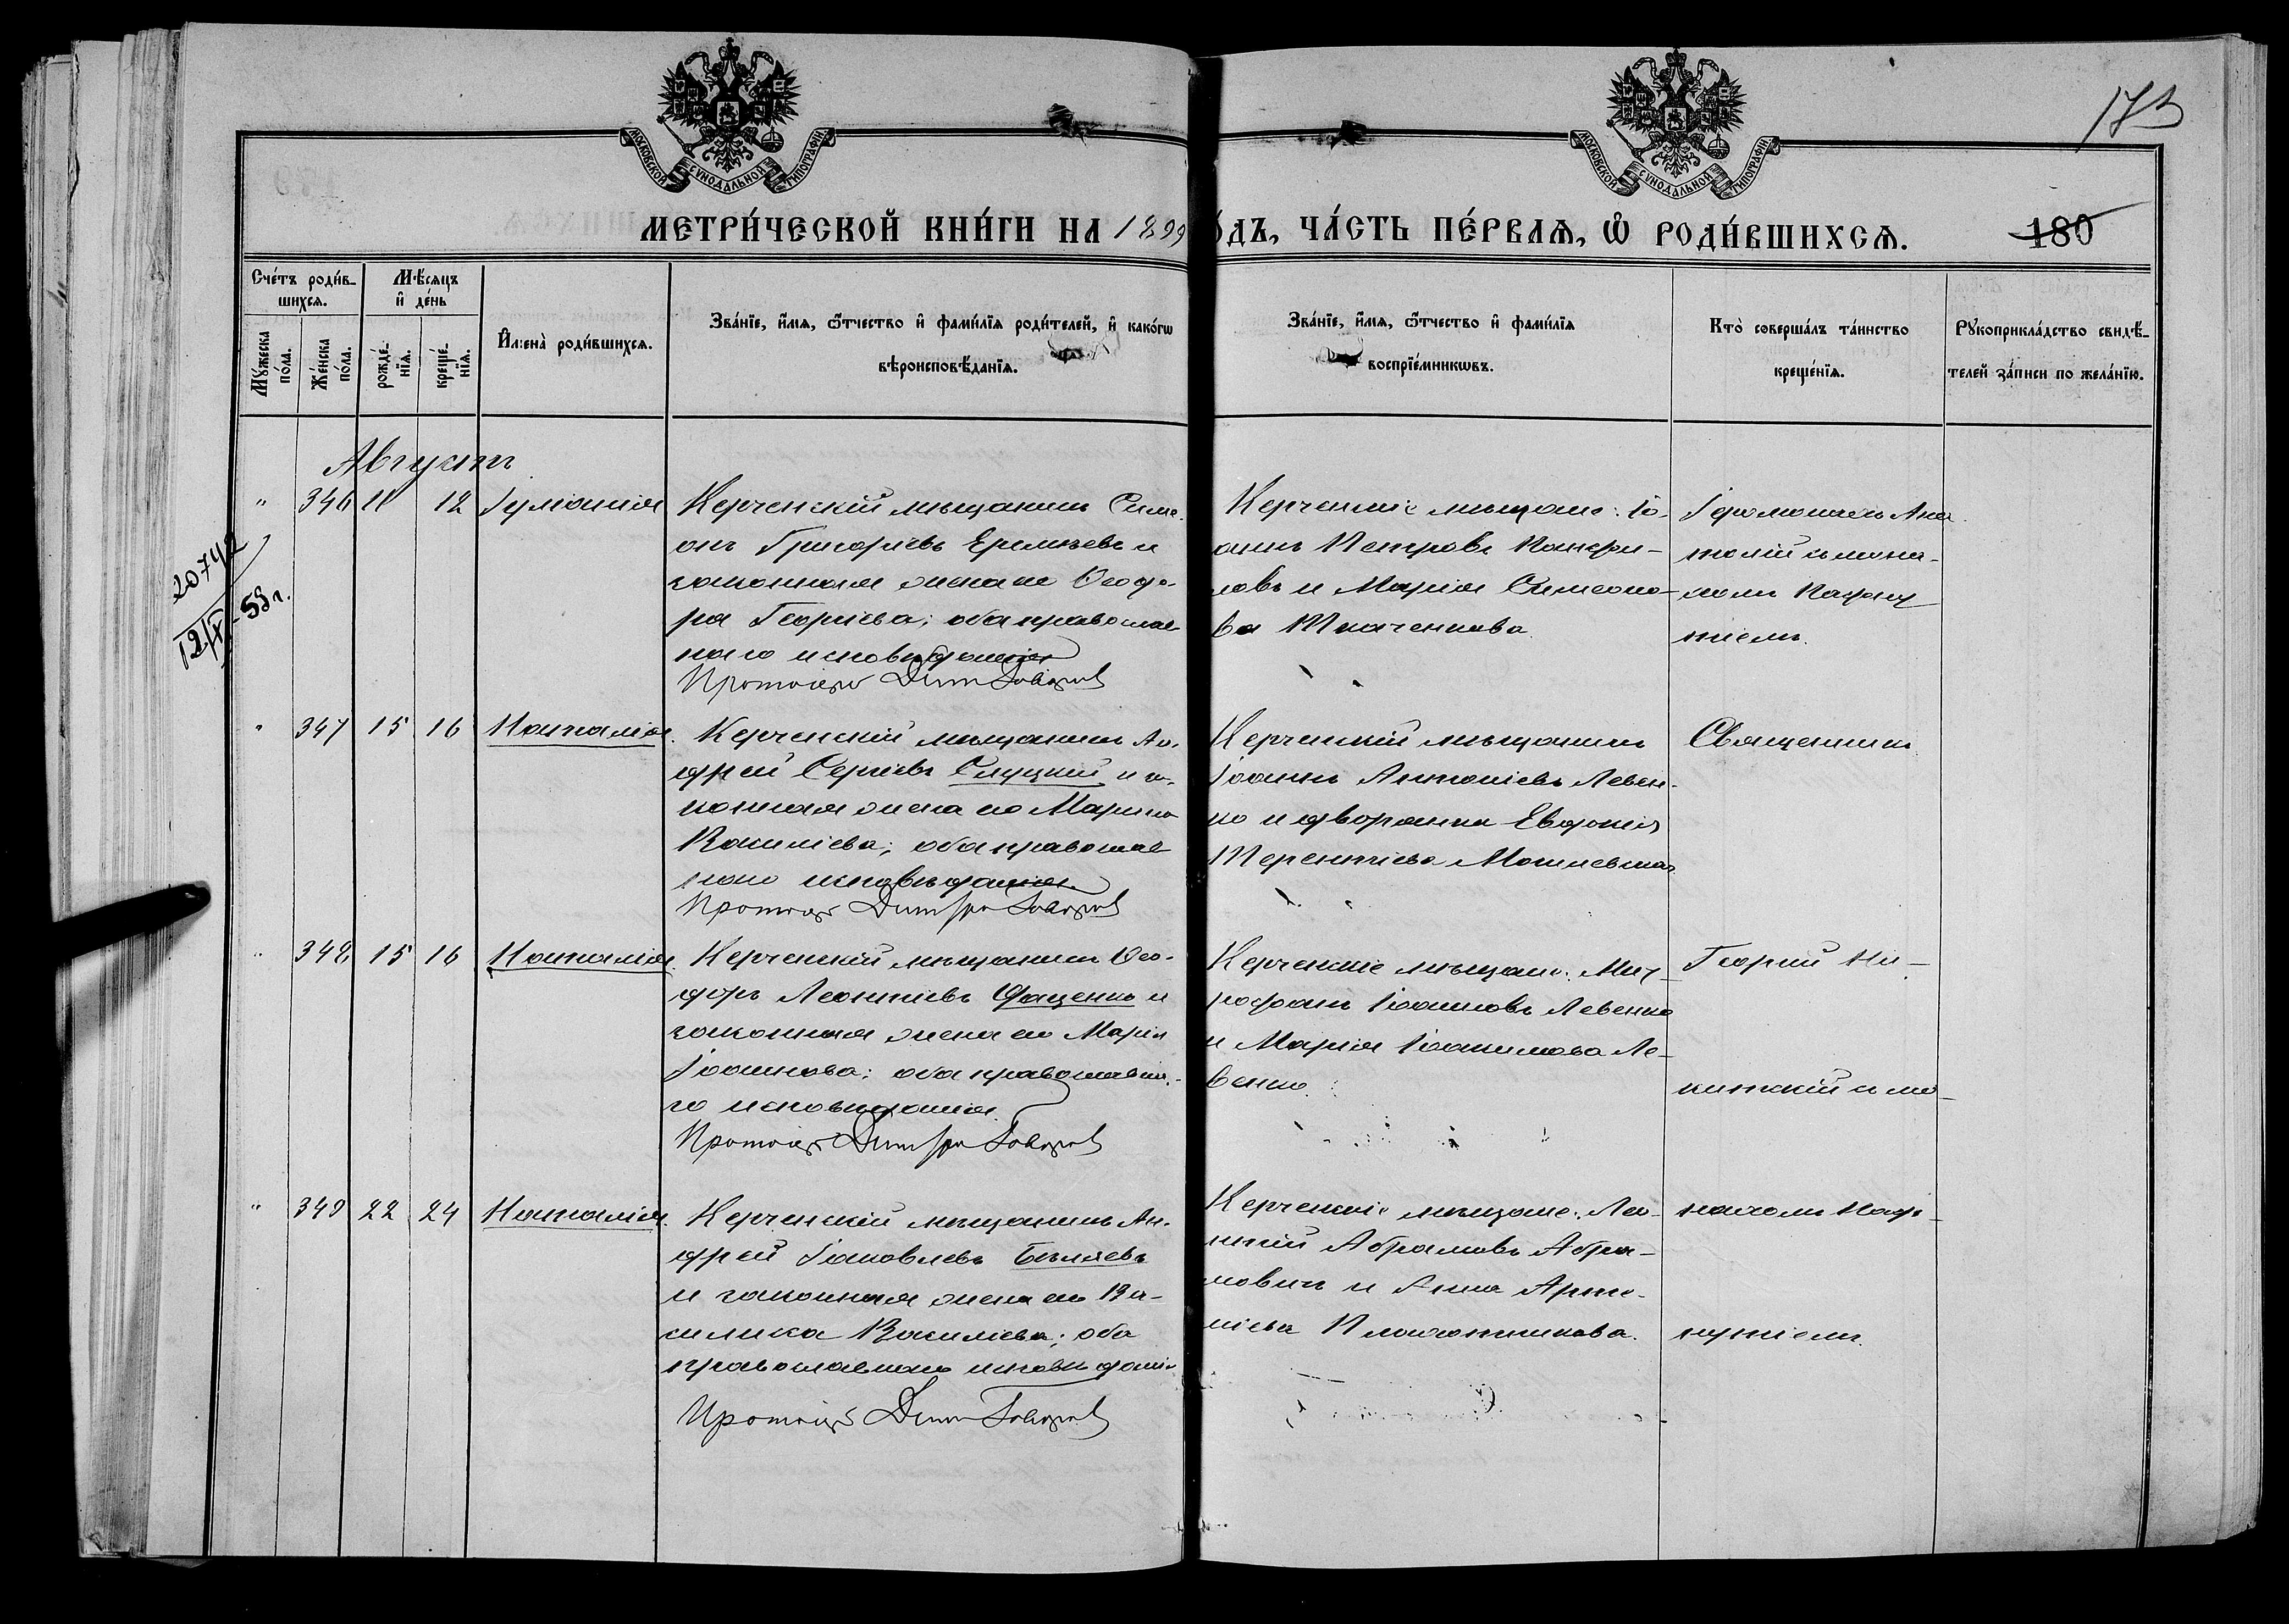 МОСКОВСКОЙ СУНОДАЛЬНОЙ ТИПОГРАФІИ
МОСКОВСКОЙ СУНОДАЛЬНОЙ ТИПОГРАФІИ
173
МЕТРИ́ЧЕСКОЙ КНИ́ГИ НА 1899 ГО́ДЪ, ЧА́СТЬ ПЕ́РВАѦ, Ѡ҆ РОДИ́ВШИХСѦ.
180
Сче́тъ роди́в-
шихсѧ.
Мꙋ́жеска по́ла.
Же́нска по́ла.
Мѣ́сѧцъ
и҆ де́нь
рожде́-
нїѧ.
креще́-
нїѧ.
И҆мена̀ роди́вшихсѧ.
Зва́нїе, и҆́мѧ, ѻ҆́тчество и҆ фами́лїѧ роди́телей, и҆ како́гѡ
вѣроисповѣ́данїѧ.
Зва́нїе, и҆́мѧ, ѻ҆́тчество и҆ фами́лїѧ
воспрїе́мникѡвъ.
Кто̀ соверша́лъ та́инство
креще́нїѧ.
Рꙋкоприкла́дство свидѣ́-
телей за́писи по жела́нїю.
Августъ
20742
12/IX-58г.
" 346 11 12 Іуліанія
Керченскій мѣщанинъ Симе-
онъ Григоріевъ Еремѣевъ и
законная жена его Ѳеодо-
ра Георгіева; оба православ-
наго исповѣданія
Протоіерей Дим. Говоров
Керченскіе мѣщане: Іо-
аннъ Петровъ Панфи-
ловъ и Марія Симеоно-
ва Ткаченкова.
Іеромонахъ Ана-
толій съ мона-
хомъ Пафну-
тіемъ.
" 347 15 16 Наталія.
Керченскій мѣщанинъ Ан-
дрей Сергіевъ Слуцкій и за-
конная жена его Марина
Василіева; оба православ-
наго исповѣданія
Протоіер. Димитри Говоров
Керченскій мѣщанинъ
Іоаннъ Антоніевъ Левен-
ко и дворянка Евдокія
Терентіева Могилевская
Священникъ
" 348 15 16 Наталія.
Керченскій мѣщанинъ Ѳео-
доръ Леонтіевъ Фащенко и
законная жена его Марія
Іоаннова; оба православна-
го исповѣданія.
Протоіер. Димитри Говоров
Керченскіе мѣщане: Мит-
рофанъ Іоанновъ Левенко
и Марія Іоакимова Ле-
венко.
Георгій Ни-
китскій съ мо-
" 349 22 24 Наталія.
Керченскій мѣщанинъ Ан-
дрей Іаковлевъ Бѣляевъ
и законная жена его Ва-
силиса Василіева; оба
православнаго исповѣданія
Протоіер. Дим. Говоров
Керченскіе мѣщане: Лео-
нтій Абрамовъ Абра-
мовичъ и Анна Арте-
міева Плотникова.
нахомъ Паф-
нутіемъ.